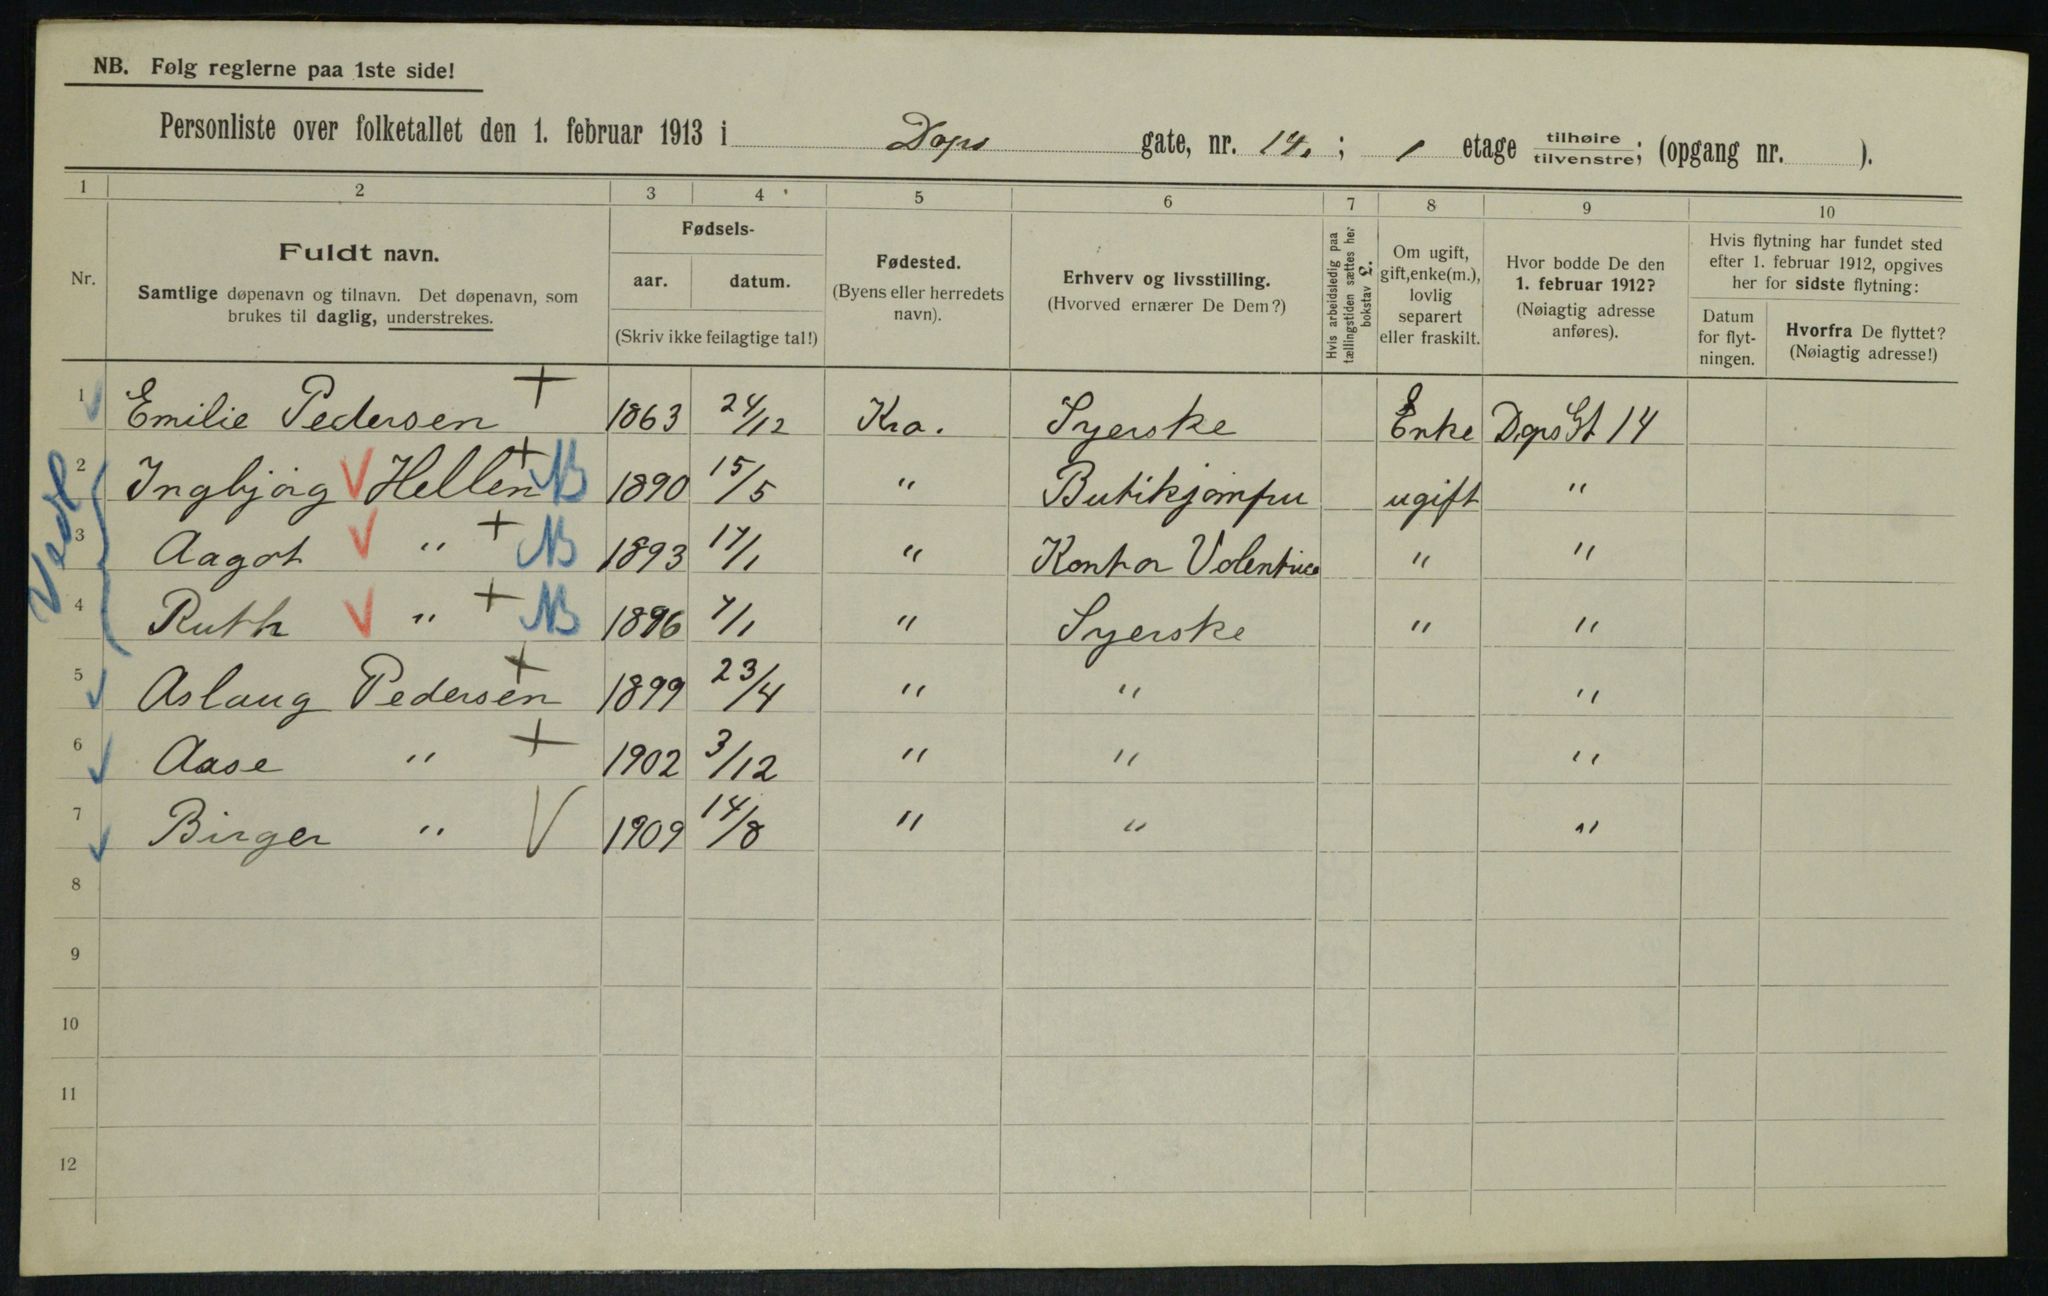 NB. Følg reglerne paa 1ste side!
Personliste over folketallet den 1. februar 1913 i Dops gate, nr. 14. ; 1 etage tilhøire / tilvenstre; (opgang nr. ).
1 2 3 4 5 6 7 8 9 10
Nr.
Fuldt navn.
Samtlige døpenavn og tilnavn. Det døpenavn, som
brukes til daglig, understrekes.
Fødsels-
aar. datum.
(Skriv ikke feilagtige tal!)
Fødested.
(Byens eller herredets
navn).
Erhverv og livsstilling.
(Hvorved ernærer De Dem?)
Hvis arbeidsledig paa
tællingstiden sættes her
bokstav L.
Om ugift,
gift, enke(m.),
lovlig
separert
eller fraskilt.
Hvor bodde De den
1. februar 1912?
(Nøiagtig adresse
anføres).
Hvis flytning har fundet sted
efter 1. februar 1912, opgives
her for sidste flytning:
Datum
for flyt-
ningen.
Hvorfra De flyttet?
(Nøiagtig adresse!)
1 Emilie Pedersen + 1863 24/12 Kra. Syerske Enke Dops Gt 14
2 Ingbjørg V Hellen + NB 1890 15/5 " Butikjomfru ugift "
3 Aagot V " + NB 1893 17/1 " Kontor " "
4 Ruth V " + NB 1896 7/1 " Syerske " "
5 Aslaug Pedersen + 1899 23/4 " " "
6 Aase " + 1902 3/12 " " "
7 Birger " V 1909 14/8 " " "
8
9
10
11
12